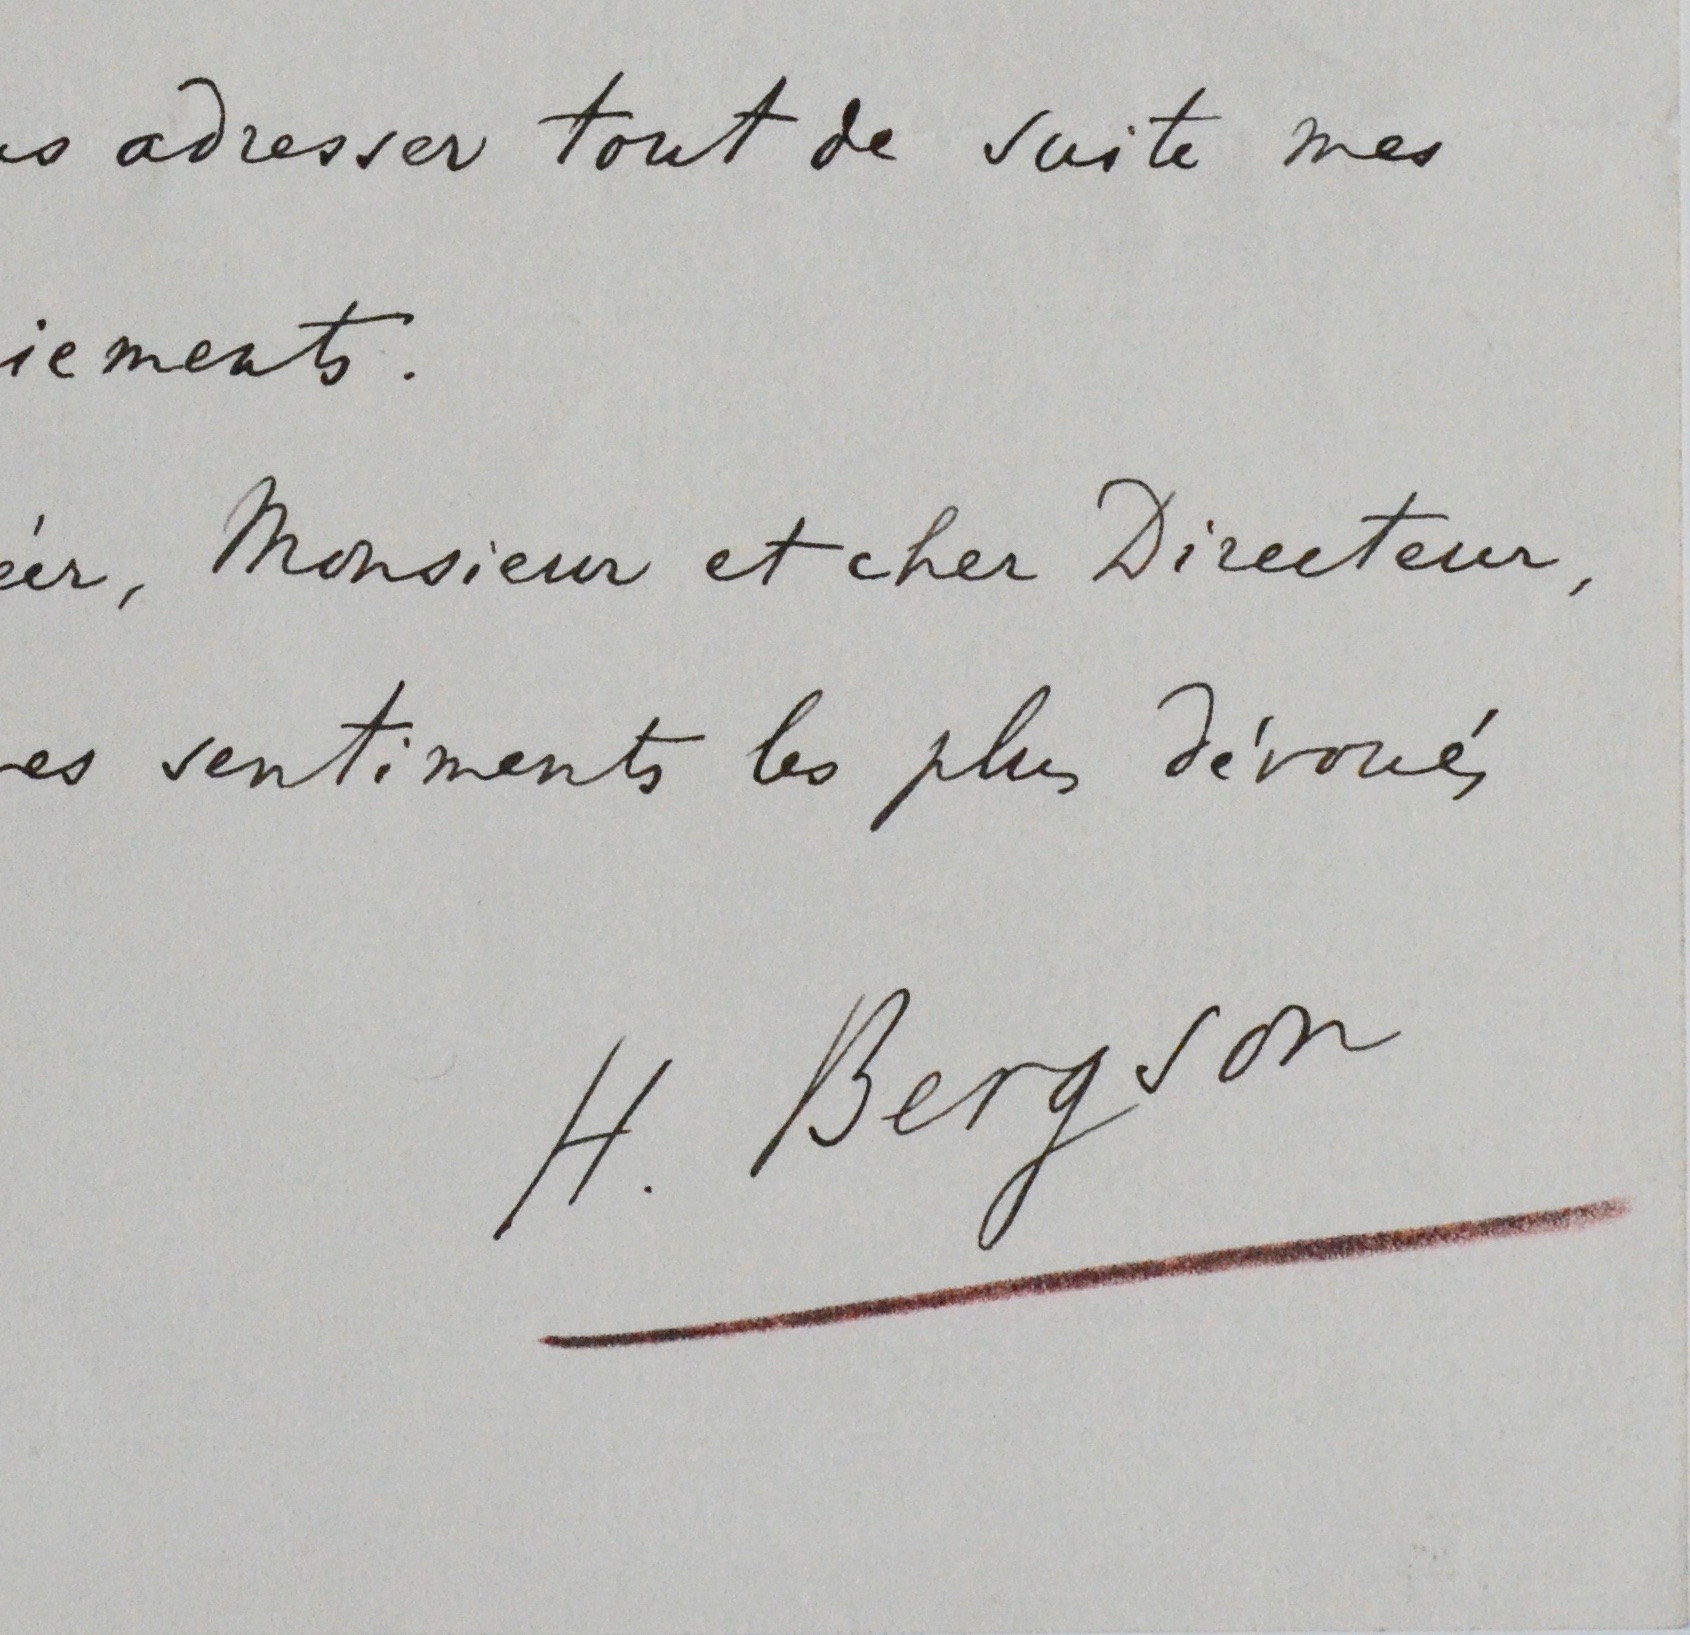 us adresser tout de suite mes
iements.
éer, Monsieur et cher Directeur,
es sentiments les plus dévoués
H. Bergson